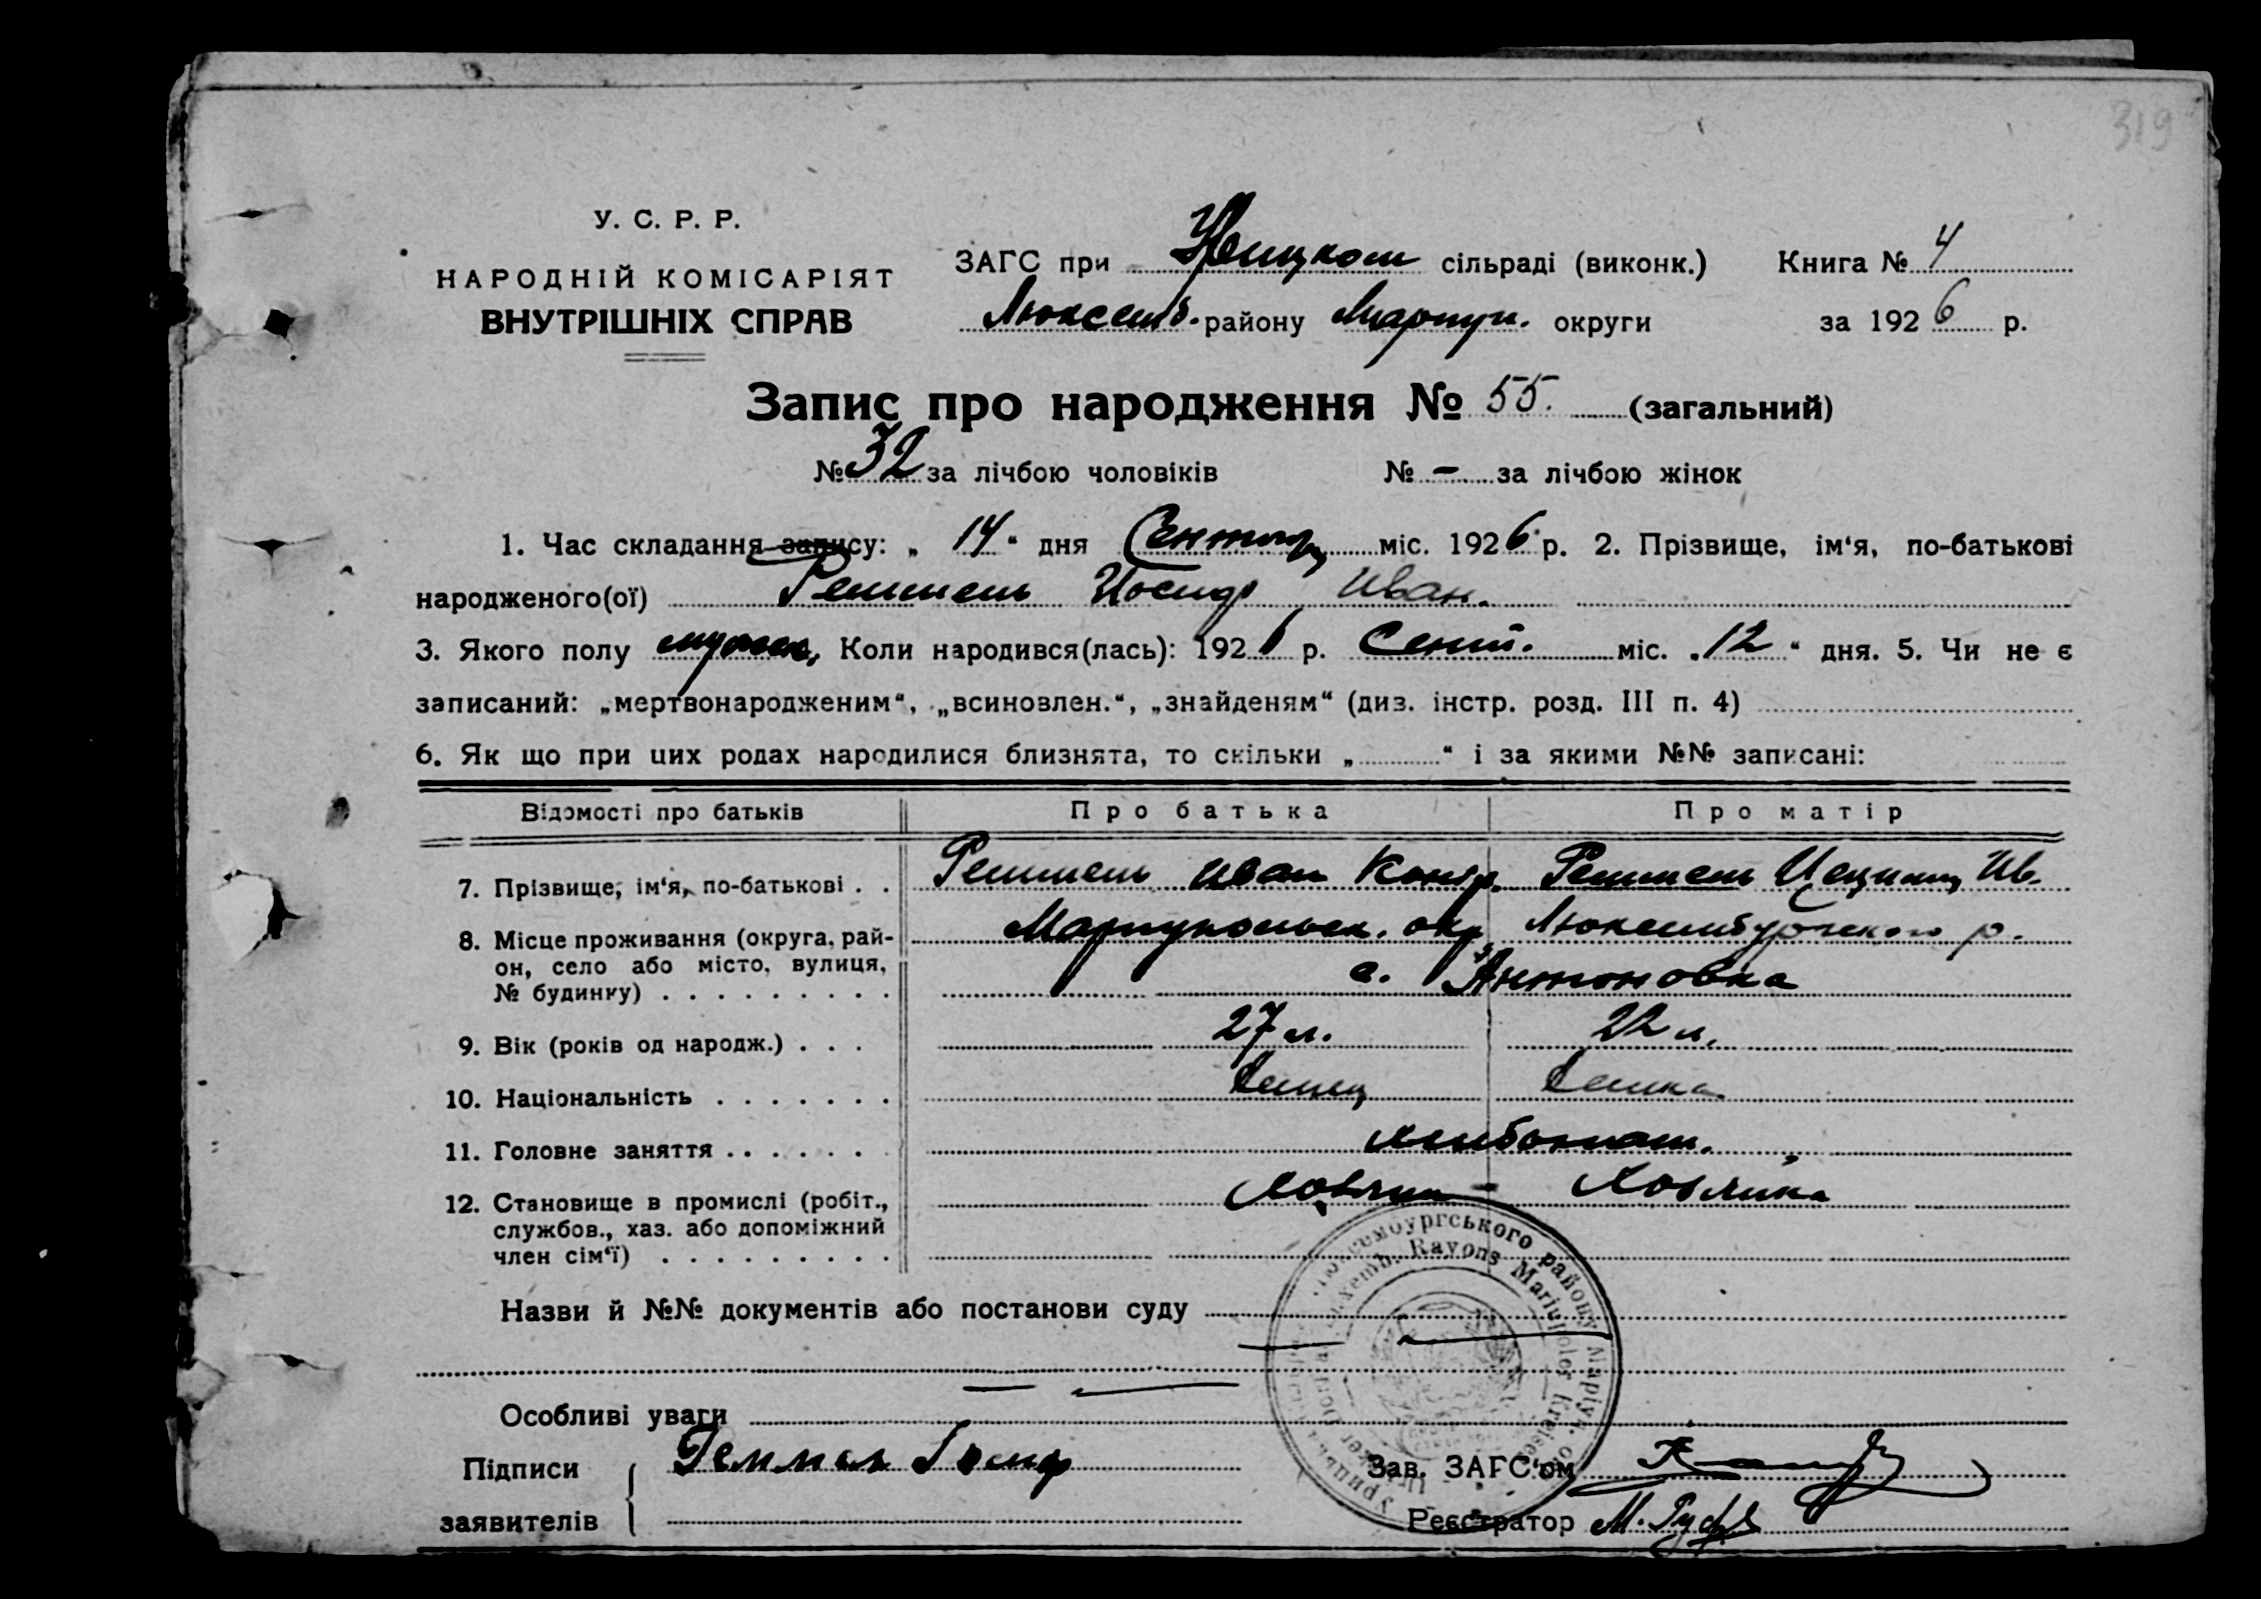 319
У. С. Р. Р.
НАРОДНІЙ КОМІСАРІЯТ
ВНУТРІШНІХ СПРАВ
ЗАГС при сільраді (виконк.) Книга № 4
Люксемб. району Мариуп. округи за 1926 р.
Запис про народження № 55. (загальний)
№ 32 за лічбою чоловіків № – за лічбою жінок
1. Час складання запису: „ 14 “ дня міс. 1926 р. 2. Прізвище, ім‘я, по-батькові
народженого(ої) Иосиф Иван.
3. Якого полу мужск, Коли народився(лась): 1926 р. Сент. міс. „ 12 “ дня. 5. Чи не є
записаний: „мертвонародженим“, „всиновлен.“, „знайденям“ (диз. інстр. розд. III п. 4)
6. Як що при цих родах народилися близнята, то скільки „ “ і за якими №№ записані:
Відомості про батьків Про батька Про матір
7. Прізвище, ім‘я, по-батькові . . Иван Ив.
8. Місце проживання (округа, рай- Мариупольск. окр. Люксембургского р.
он, село або місто, вулиця, с. Антоновка
№ будинку) . . . . . . . . .
9. Вік (років од народж.) . . . 27 л. 22 л.
10. Національність . . . . . . . Немец Немка
11. Головне заняття . . . . . . . хлебопаш.
12. Становище в промислі (робіт., Хозяин – Хозяйка
службов., хаз. або допоміжний
член сім‘ї) . . . . . . . . .
Назви й №№ документів або постанови суду
Особливі уваги
Підписи
заявителів
Зав. ЗАГС‘ом
Реєстратор М.
Люксембургського району Маріуп. ок
Luxemb. Rayons Mariupoler Kreises